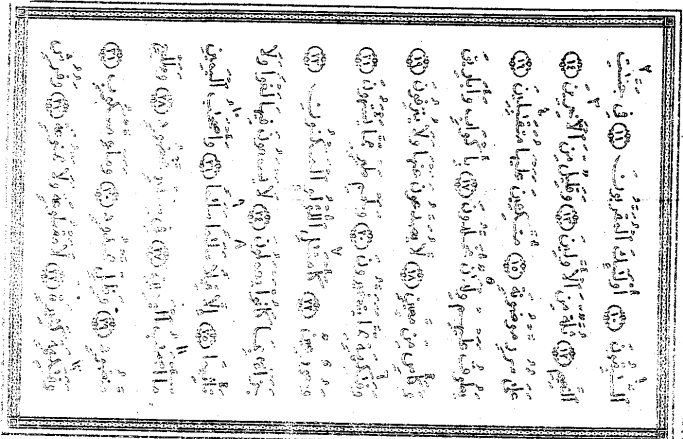 السَّـٰبِقُونَ ﴿١٠﴾ أُو۟لَـٰٓئِكَ ٱلْمُقَرَّبُونَ ﴿١١﴾ فِى جَنَّـٰتِ
ٱلنَّعِيمِ ﴿١٢﴾ ثُلَّةٌ مِّنَ ٱلْأَوَّلِينَ ﴿١٣﴾ وَقَلِيلٌ مِّنَ ٱلْـَٔاخِرِينَ ﴿١٤﴾
عَلَىٰ سُرُرٍ مَّوْضُونَةٍ ﴿١٥﴾ مُّتَّكِـِٔينَ عَلَيْهَا مُتَقَـٰبِلِينَ ﴿١٦﴾
يَطُوفُ عَلَيْهِمْ وِلْدَٰنٌ مُّخَلَّدُونَ ﴿١٧﴾ بِأَكْوَابٍ وَأَبَارِيقَ
وَكَأْسٍ مِّن مَّعِينٍ ﴿١٨﴾ لَّا يُصَدَّعُونَ عَنْهَا وَلَا يُنزِفُونَ ﴿١٩﴾
وَفَـٰكِهَةٍ مِّمَّا يَتَخَيَّرُونَ ﴿٢٠﴾ وَلَحْمِ طَيْرٍ مِّمَّا يَشْتَهُونَ ﴿٢١﴾
وَحُورٌ عِينٌ ﴿٢٢﴾ كَأَمْثَـٰلِ ٱللُّؤْلُؤِ ٱلْمَكْنُونِ ﴿٢٣﴾
جَزَآءًۢ بِمَا كَانُوا۟ يَعْمَلُونَ ﴿٢٤﴾ لَا يَسْمَعُونَ فِيهَا لَغْوًا وَلَا
تَأْثِيمًا ﴿٢٥﴾ إِلَّا قِيلًا سَلَـٰمًا سَلَـٰمًا ﴿٢٦﴾ وَأَصْحَـٰبُ ٱلْيَمِينِ
مَآ أَصْحَـٰبُ ٱلْيَمِينِ ﴿٢٧﴾ فِى سِدْرٍ مَّخْضُودٍ ﴿٢٨﴾ وَطَلْحٍ
مَّنضُودٍ ﴿٢٩﴾ وَظِلٍّ مَّمْدُودٍ ﴿٣٠﴾ وَمَآءٍ مَّسْكُوبٍ ﴿٣١﴾
وَفَـٰكِهَةٍ كَثِيرَةٍ ﴿٣٢﴾ لَّا مَقْطُوعَةٍ وَلَا مَمْنُوعَةٍ ﴿٣٣﴾ وَفُرُشٍ